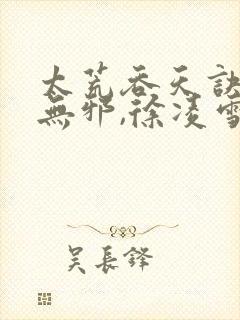 太荒吞天訣
無邪,徐凌雪
吴長鋒